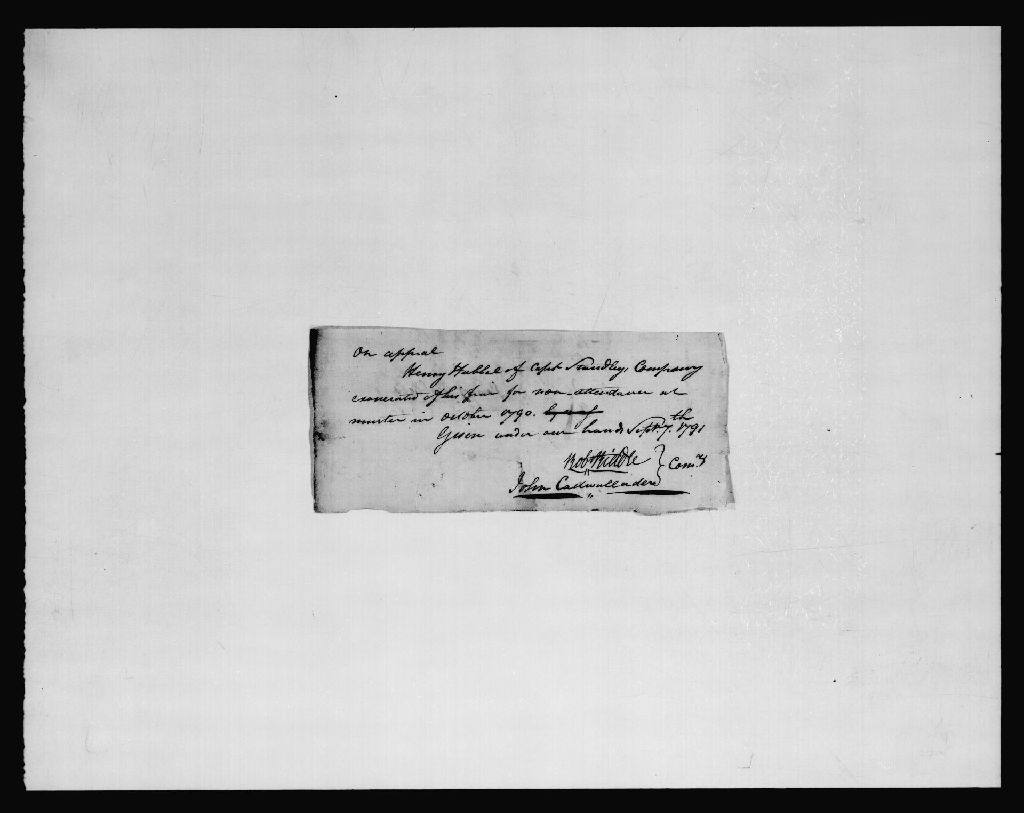 On appeal
Henry Hubbel of Capt Standley, Company
exonerated of his fine for non-attendance at
muster in October 1790.
Given under our hands Septr. 7th. 1791
Robt Riddle } Comrs
John Cadwallader